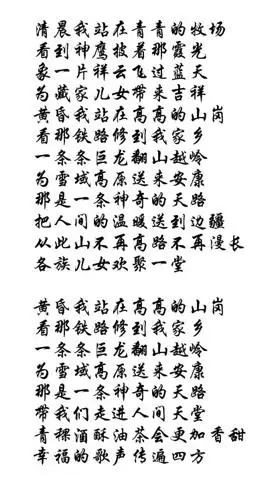 清晨我站在青青的牧场
看到神鹰披着那霞光
象一片祥云飞过蓝天
为藏家儿女带来吉祥
黄昏我站在高高的山岗
看那铁路修到我家乡
一条条巨龙翻山越岭
为雪域高原送来安康
那是一条神奇的天路
把人间的温暖送到边疆
从此山不再高路不再漫长
各族儿女欢聚一堂
黄昏我站在高高的山岗
看那铁路修到我家乡
一条条巨龙翻山越岭
为雪域高原送来安康
那是一条神奇的天路
带我们走进人间天堂
青稞酒酥油茶会更加香甜
幸福的歌声传遍四方